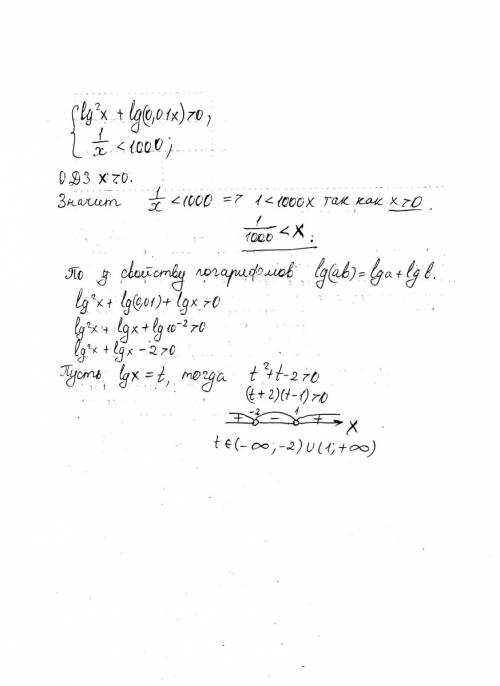 lg²x + lg(0,01x)>0;
1/x < 1000;
ОДЗ x>0.
Значит 1/x < 1000 => 1 < 1000x так как x>0.
1/1000 < x.
По свойству логарифмов lg(ab) = lga + lg b.
lg²x + lg(0,01) + lgx >0
lg²x + lgx + lg10⁻² >0
lg²x + lgx - 2 >0
Пусть lgx = t, тогда t²+t-2>0
(t+2)(t-1)>0
+ -2 - 1 + x
t ∈ (-∞; -2) ∪ (1; +∞)